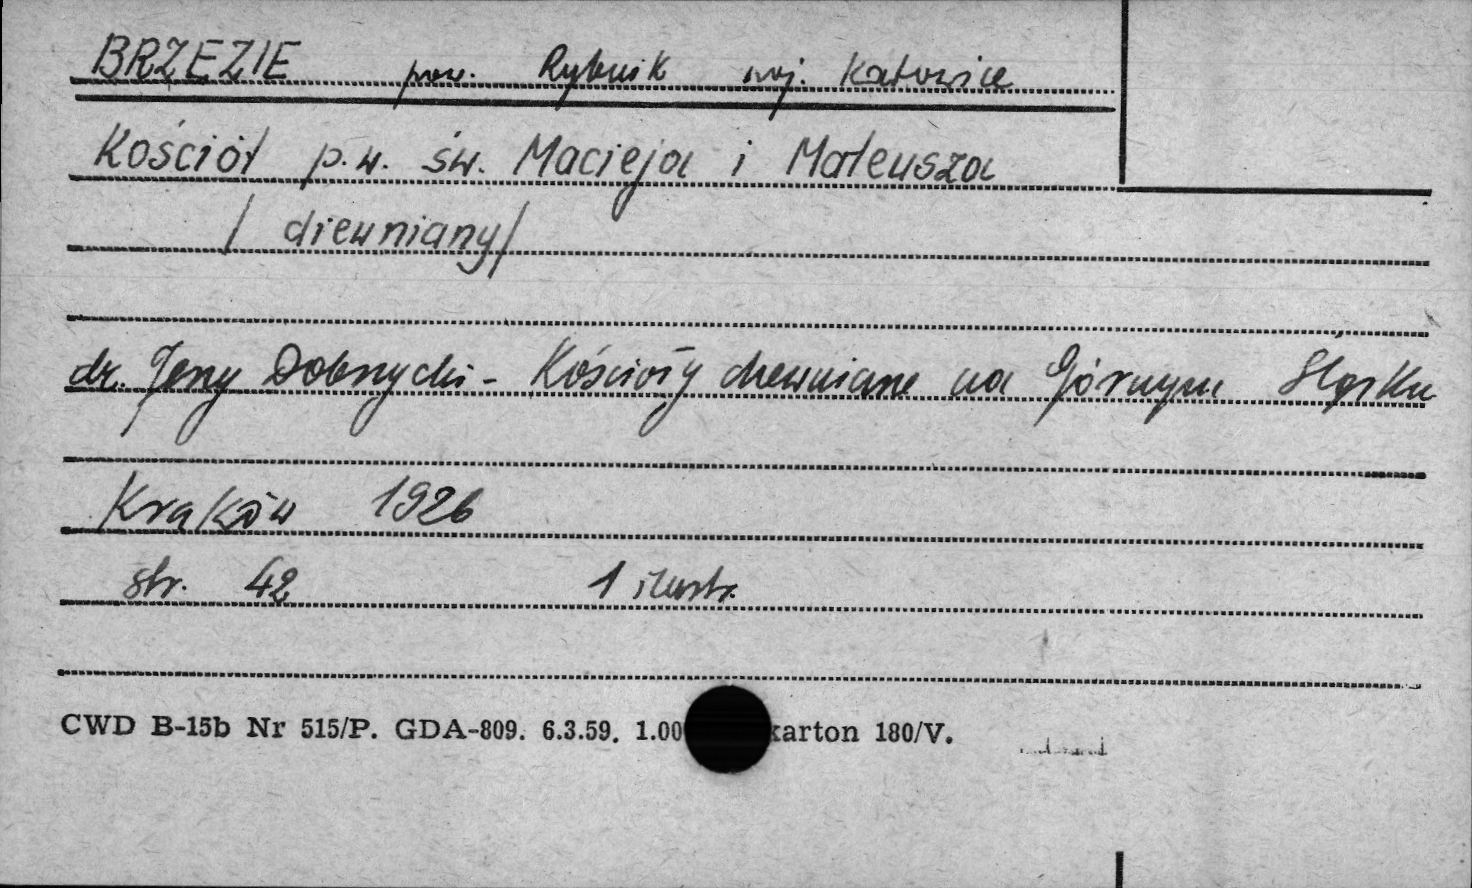 BRZEZIE pow. Rybnik woj. Katowice
Kościół p.w. św. Macieja i Mateusza
/ drewniany/
dr. Jerzy Dobrzycki - Kościoły drewniane na Górnym Śląsku
Kraków 1926
str. 42 1 ilustr.
CWD B-15b Nr 515/P. GDA-809. 6.3.59. 1.00 karton 180/V.